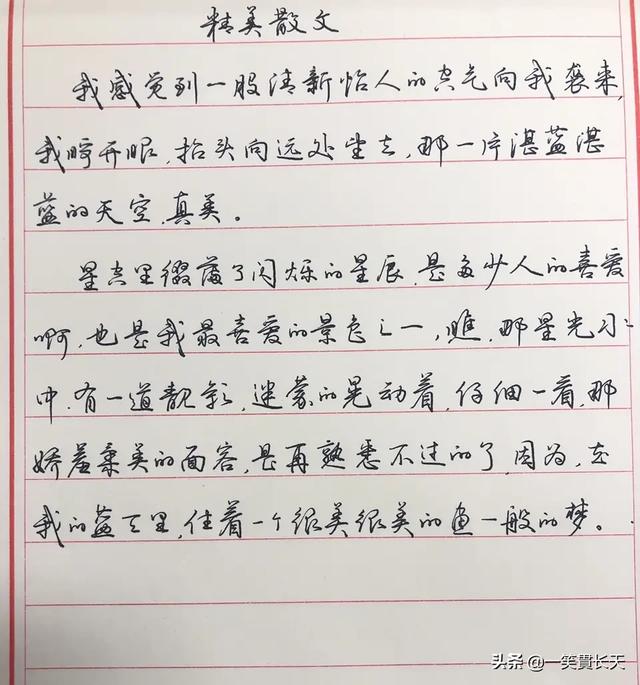 精美散文
我感觉到一股清新怡人的空气向我袭来,
我睁开眼,抬头向远处望去,那一片湛蓝湛
蓝的天空,真美。
星空里缀满了闪烁的星辰,是多少人的喜爱
啊,也是我最喜爱的景色之一,瞧,那星光
中,有一道靓影,迷蒙的晃动着,仔细一看,那
娇羞柔美的面容,是再熟悉不过的了,因为,在
我的蓝天里,住着一个很美很美的画一般的梦。
头条 @一笑貫长天